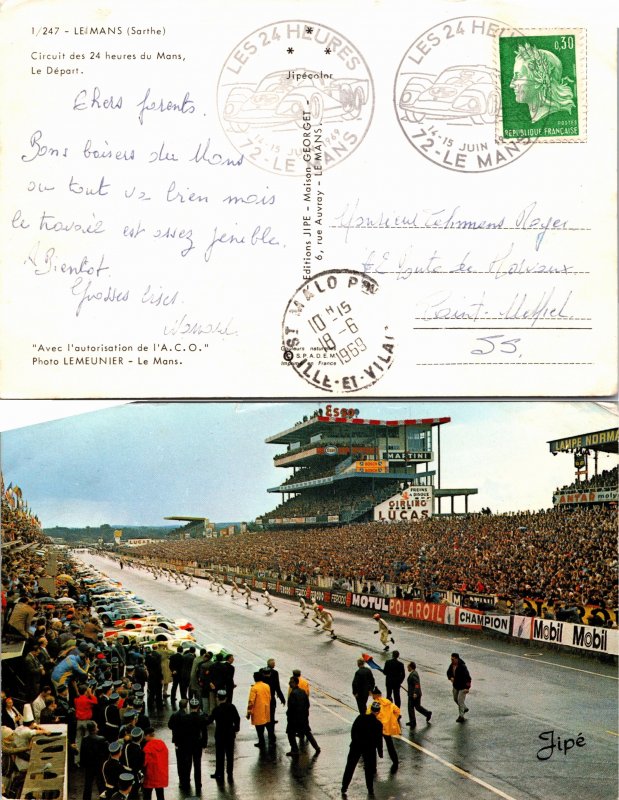 1/247 - LE MANS (Sarthe)
Circuit des 24 heures du Mans,
Le Départ.
Chers parents.
Bons baisers du Mans
ou tout va bien mais
le travail est assez penible.
A Bientot.
Grosses bises.
"Avec l'autorisation de l'A.C.O."
Photo LEMEUNIER - Le Mans.
LES 24 HEURES
14-15 JUIN 1969
72-LE MANS
Jipécolor
Editions JIPE - Maison GEORGET -
6, rue Auvray - LE MANS.
Couleurs naturelles
© S.P.A.D.E.M.
Imprimé en France
ST MALO PPAL
10 H 15
18-6
1969
ILLE-ET-VILAINE
LES 24 HEURES
14-15 JUIN
72-LE MANS
0,30
POSTES
REPUBLIQUE FRANÇAISE
Monsieur Roger
de
Saint-
Esso
Esso
MARTINI
FREINS
A DISQUE
GIRLING
LUCAS
LAMPE NORMA
ANTAR
MOTUL
POLAROIL
CHAMPION
Mobil
Mobil
Jipé